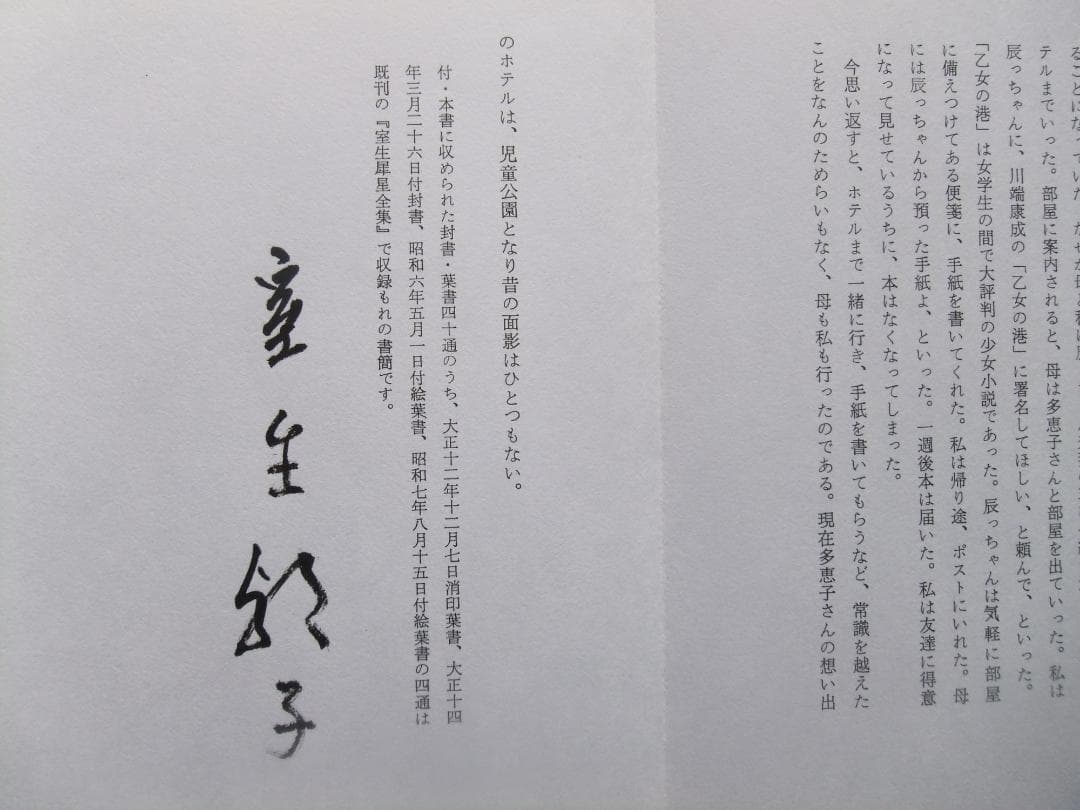 ることになっていた
テルまでいった。部屋に案内されると、母は多恵子さんと部屋を出ていった。私は
辰っちゃんに、川端康成の「乙女の港」に署名してほしい、と頼んで、といった。
「乙女の港」は女学生の間で大評判の少女小説であった。辰っちゃんは気軽に部屋
に備えつけてある便箋に、手紙を書いてくれた。私は帰り途、ポストにいれた。母
には辰っちゃんから預った手紙よ、といった。一週後本は届いた。私は友達に得意
になって見せているうちに、本はなくなってしまった。
今思い返すと、ホテルまで一緒に行き、手紙を書いてもらうなど、常識を越えた
ことをなんのためらいもなく、母も私も行ったのである。現在多恵子さんの想い出
のホテルは、児童公園となり昔の面影はひとつもない。
付・本書に収められた封書・葉書四十通のうち、大正十二年十二月七日消印葉書、大正十四
年三月二十六日付封書、昭和六年五月一日付絵葉書、昭和七年八月十五日付絵葉書の四通は
既刊の『室生犀星全集』で収録もれの書簡です。
室生朝子